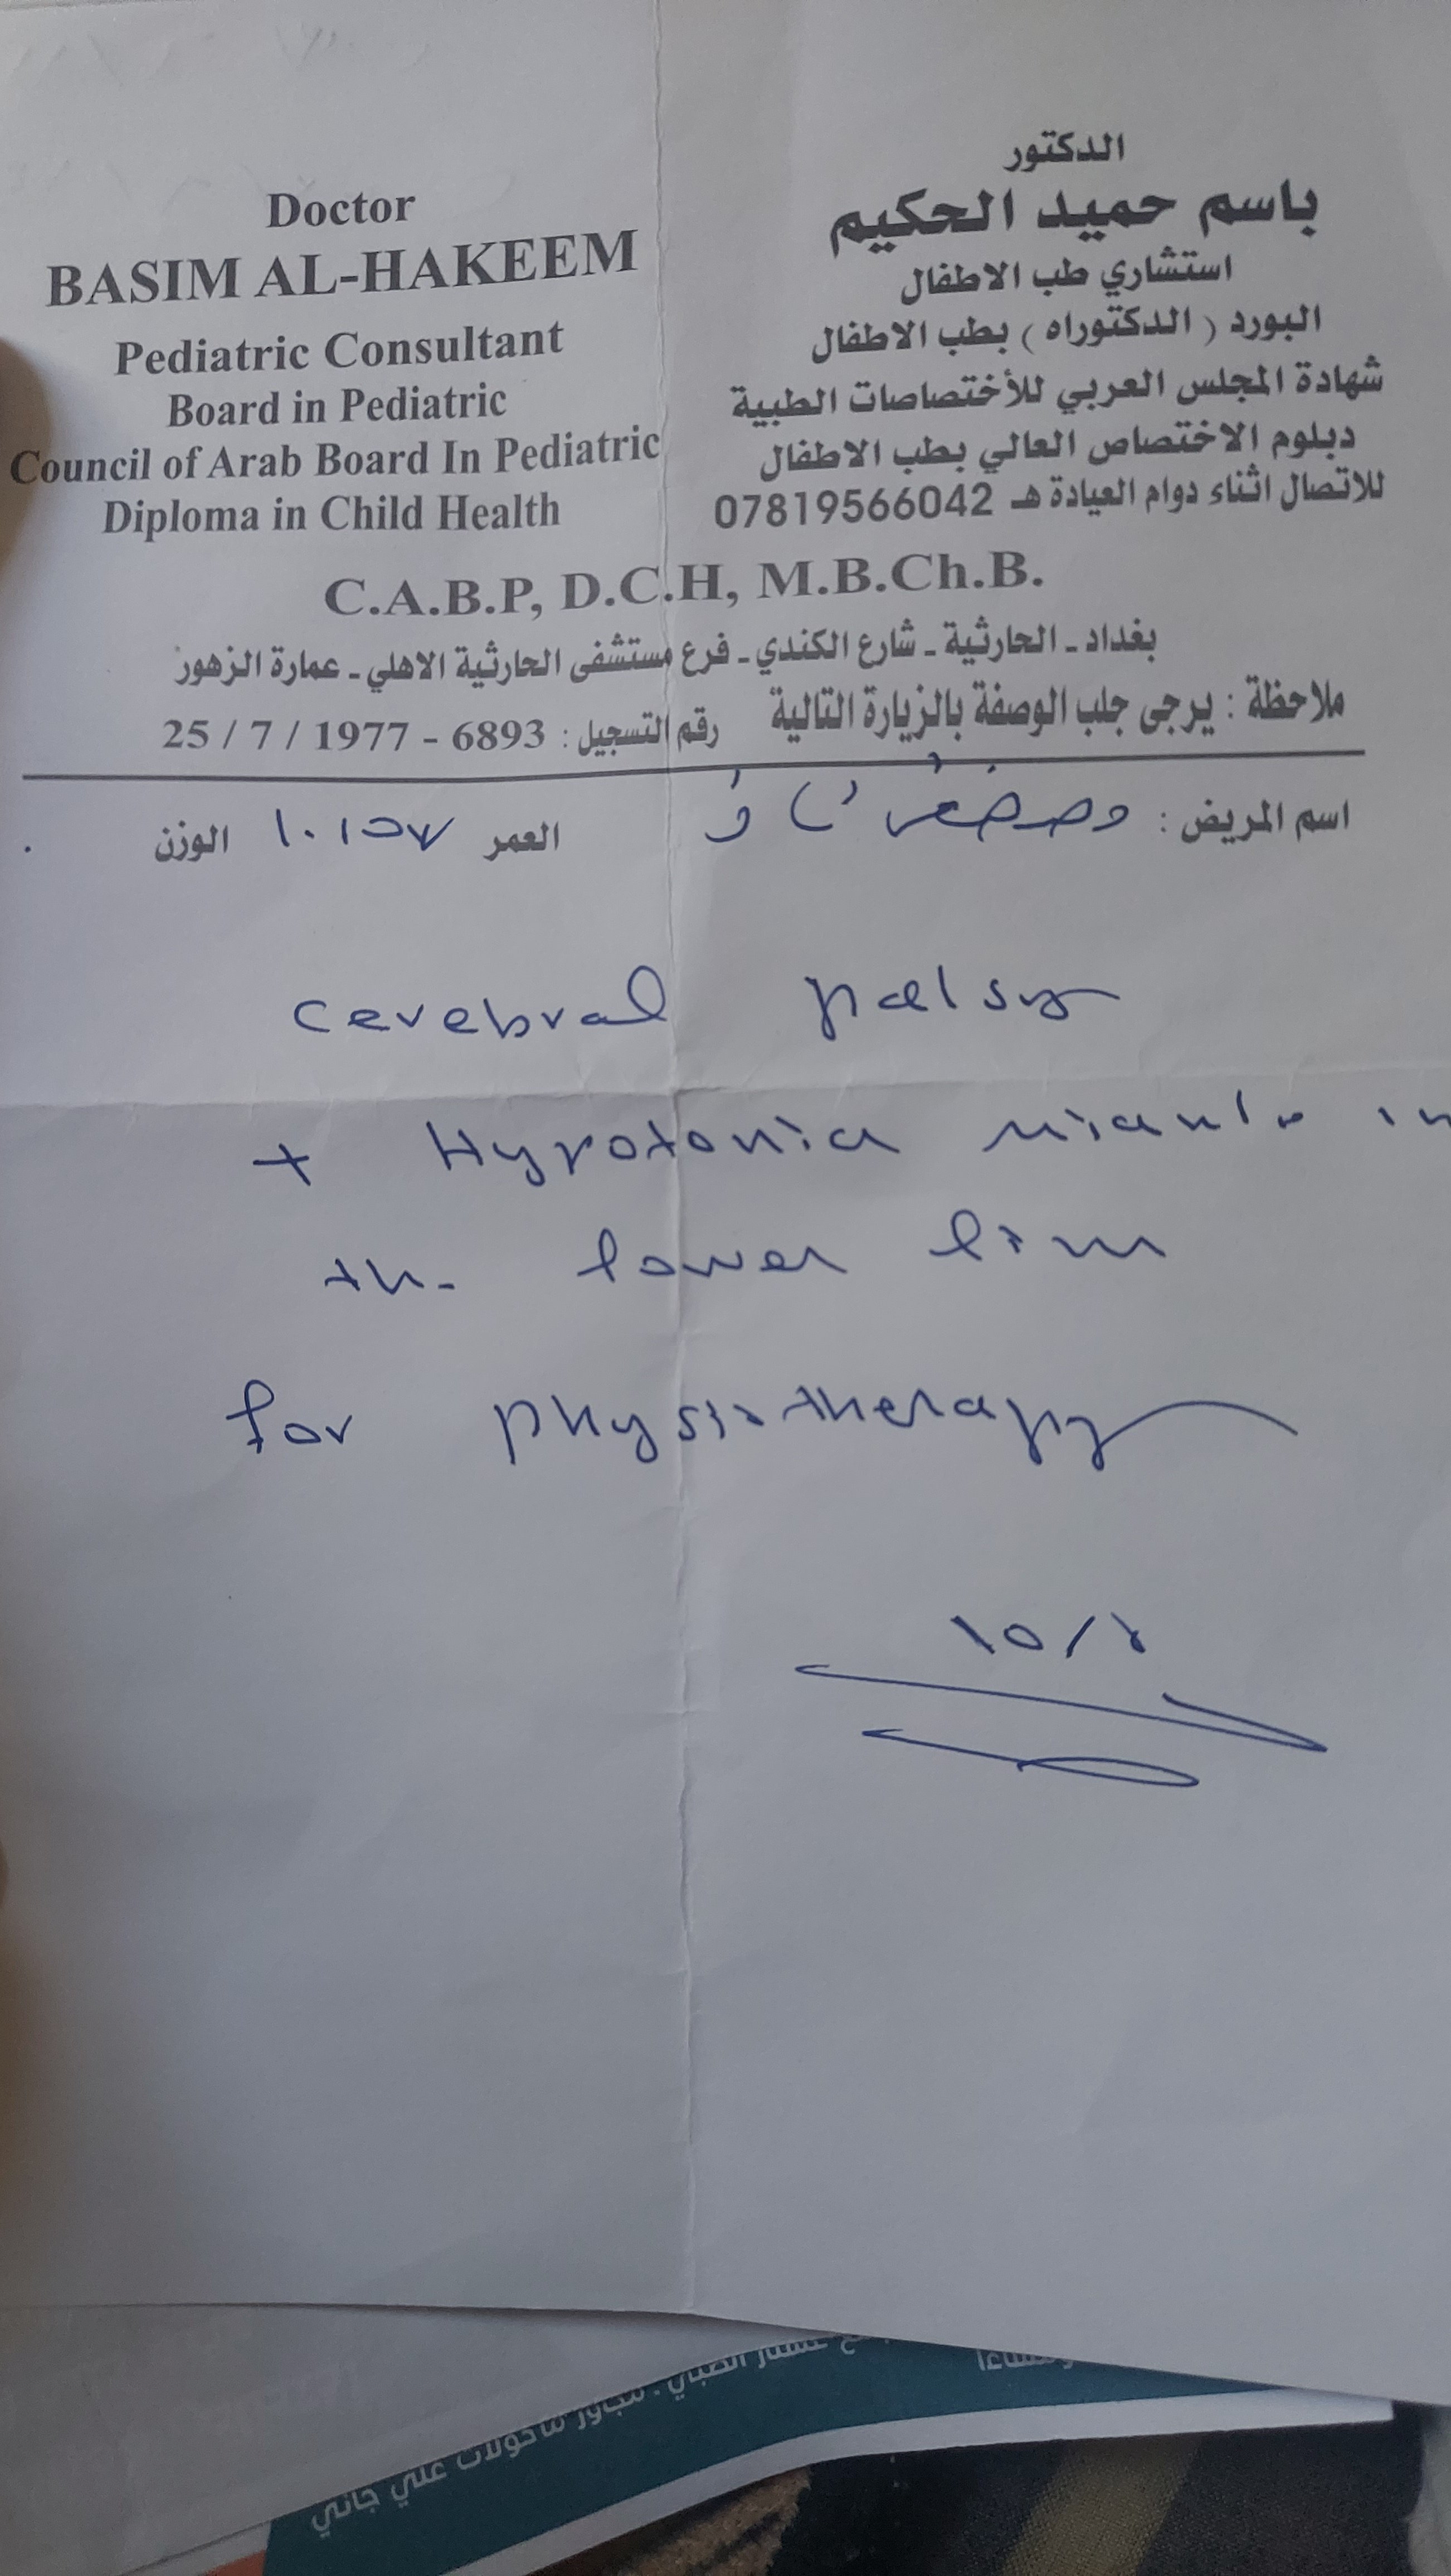 Doctor
BASIM AL-HAKEEM
Pediatric Consultant
Board in Pediatric
Council of Arab Board In Pediatric
Diploma in Child Health
الدكتور
باسم حميد الحكيم
استشاري طب الاطفال
البورد ( الدكتوراه ) بطب الاطفال
شهادة المجلس العربي للأختصاصات الطبية
دبلوم الاختصاص العالي بطب الاطفال
للاتصال اثناء دوام العيادة هـ 07819566042
C.A.B.P, D.C.H, M.B.Ch.B.
بغداد ـ الحارثية ـ شارع الكندي ـ فرع مستشفى الحارثية الاهلي ـ عمارة الزهور
ملاحظة : يرجى جلب الوصفة بالزيارة التالية رقم التسجيل : 6893 - 1977 / 7 / 25
اسم المريض : العمر الوزن
cerebral palsy
+ Hypotonia in
the lower lim
for physiotherapy
مجاور ماكولات علي جاني